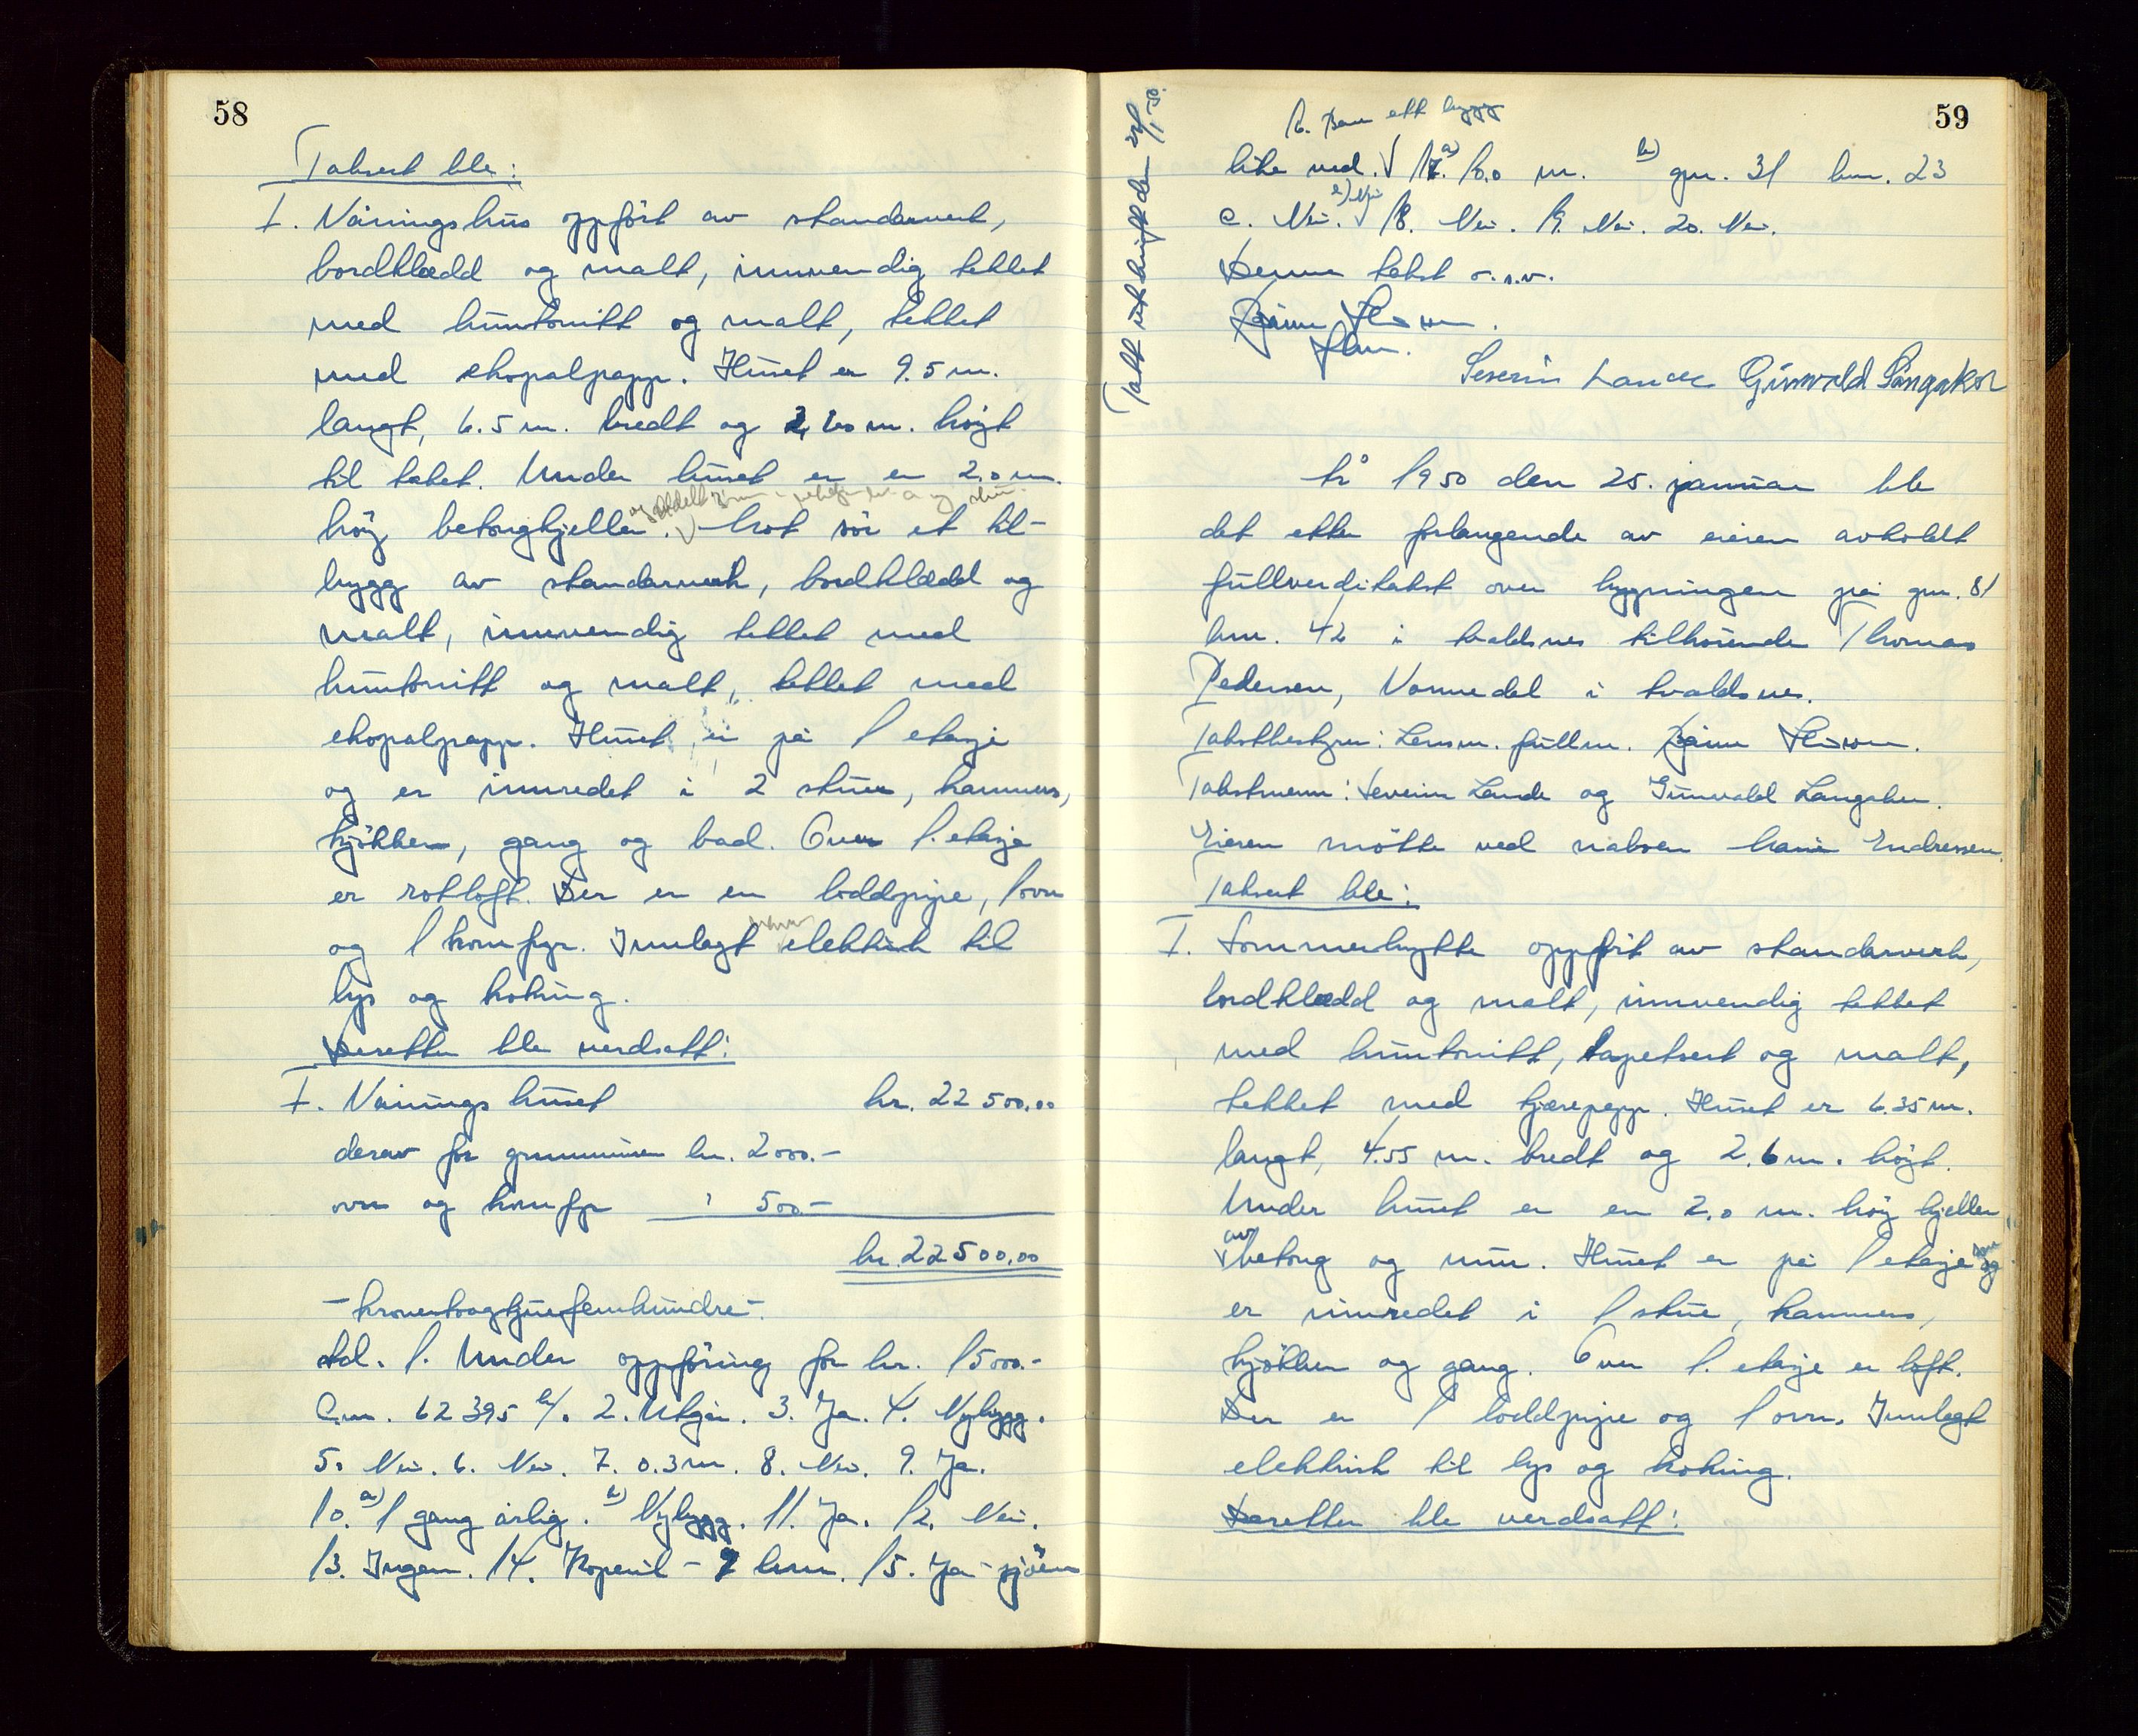 58
Taksert ble:
I. Våningshus oppført av standerverk,
bordklædd og malt, innvendig tekket
med huntonitt og malt, tekket
med ekopalpapp. Huset er 9.5 m.
langt, 6.5 m. bredt og 2,60 m. høgt
til taket. Under huset er en 2.0 m.
høg betongkjeller. Mot sør et til-
bygg av standerverk, bordklædd og
malt, innvendig tekket med
huntonitt og malt, tekket med
ekopalpapp. Huset er på 1 etasje
og er innredet i 2 stuer, kammers,
kjøkken, gang og bad. Over 1. etasje
er rotloft. Der er en loddpipe, 1 ovn
og 1 komfyr. Innlagt elektrisk til
lys og koking.
Deretter ble verdsatt:
I. Våningshuset kr. 22 500,00
derav for grunnmuren kr. 2000.-
ovn og komfyr " 500.-
kr. 22500,00
- kronertoogtjuefemhundre -
Ad. 1. Under oppføring for kr. 15000.-
A.nr. 62395 b/. 2. Utgår. 3. Ja. 4. Nybygg.
5. Nei. 6. Nei. 7. 0.3 m. 8. Nei. 9. Ja.
10. a) 1 gang årlig. b) Nybygg. 11. Ja. 12. Nei.
13. Ingen. 14. Kopervik - 7 km. 15. Ja - sjøen
59
Tatt utskrift den 27/1-50.
16. Bare ett bygg
like ved. 17. a) 10.0 m. b) gnr. 31 bnr. 23
c. Nei. d) Nei 18. Nei. 19. Nei. 20. Nei.
Denne takst o.s.v.
Severin Lande Gunvald Langaker
År 1950 den 25. januar ble
det etter forlangende av eieren avholdt
fullverditakst over bygningen på gnr. 81
bnr. 42 i Avaldsnes tilhørende Thomas
Pedersen, Vormedal i Avaldsnes.
Takstbestyrer: Lensm. fullm. Bjarne
Takstmenn: Severin Lande og Gunvald Langaker.
Eieren møtte ved naboen Endresen.
Taksert ble:
I. Sommerhytte oppført av standerverk,
bordklædd og malt, innvendig tekket
med huntonitt, tapetsert og malt,
tekket med tjærepapp. Huset er 6.35 m.
langt, 4.55 m. bredt og 2.6 m. høgt.
Under huset er en 2.0 m. høg kjeller
av betong og mur. Huset er på 1 etasje og
er innredet i 1 stue, kammers,
kjøkken og gang. Over 1. etasje er loft.
Der er 1 loddpipe og 1 ovn. Innlagt
elektrisk til lys og koking.
Deretter ble verdsatt: